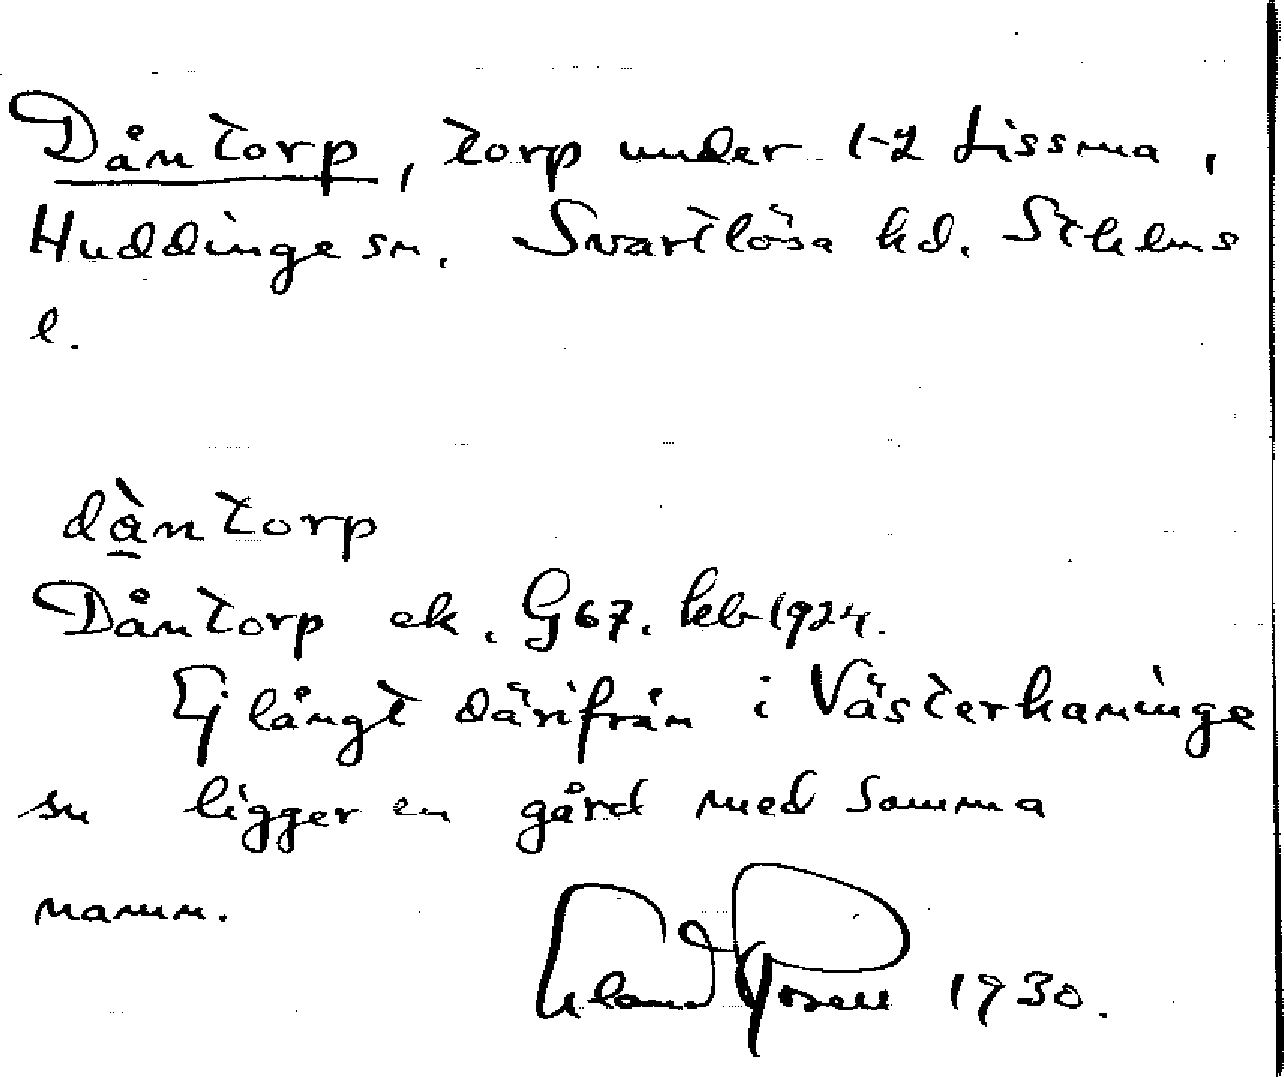 Dåntorp, torp under 1-2 Lissma,
Huddinge sn. Svartlösa hd. Sthlms
l.
dàntorp
Dåntorp ek. G67. kb 1924.
Ej långt därifrån i Västerhaninge
sn ligger en gård med samma
namn.
Rosell 1930.